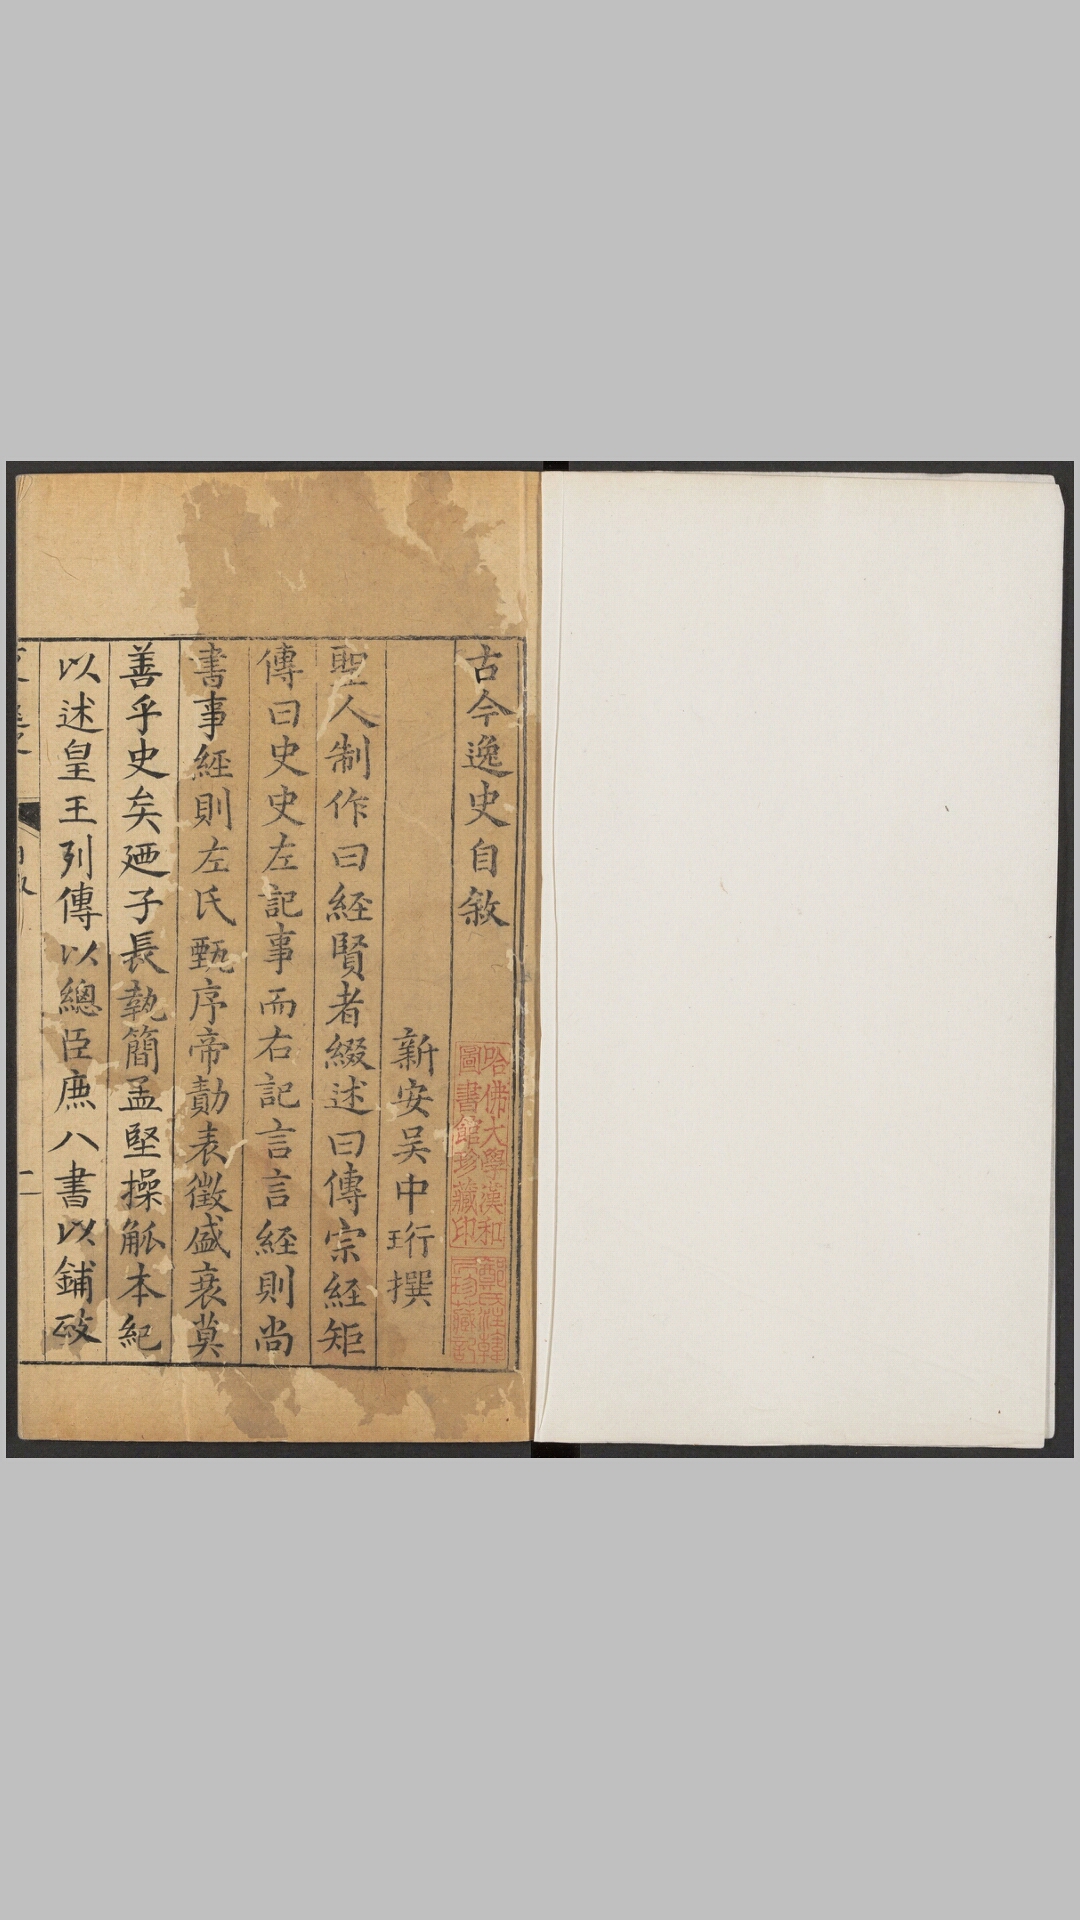 古今逸史自敘
新安吳中珩撰
聖人制作曰經賢者綴述曰傳宗經矩
傳曰史史左記事而右記言言經則尚
書事經則左氏甄序帝勣表徵盛衰莫
善乎史矣廼子長執簡孟堅操觚本紀
以述皇王列傳以總臣庶八書以鋪政
哈佛大學漢和
圖書館珍藏印